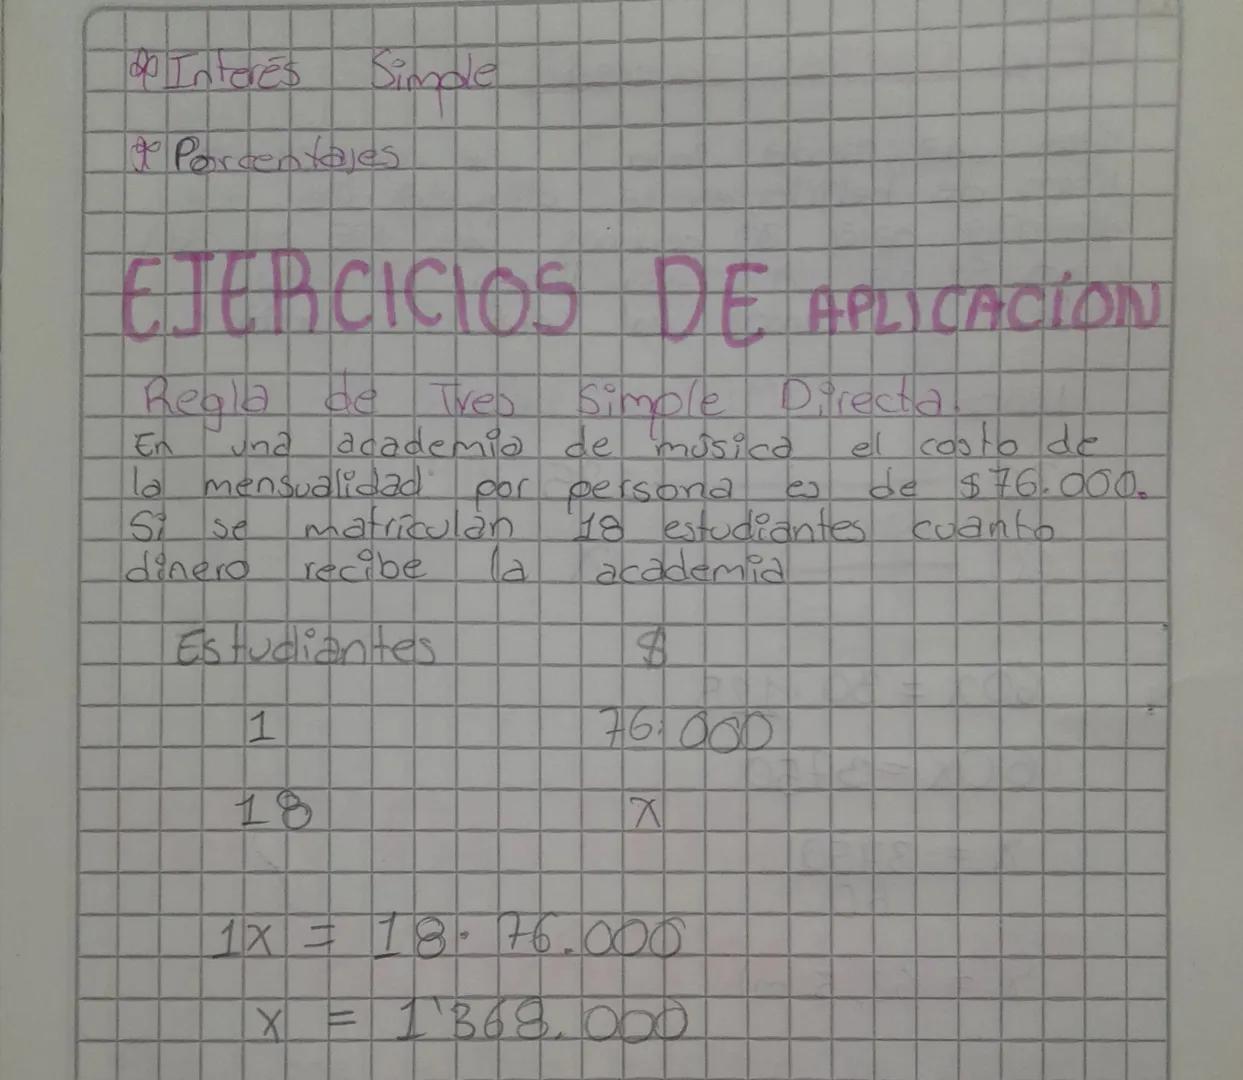 * Interés Simple
* Porcentajes
EJERCICIOS DE APLICACIÓN
Regla de Tres Simple Directa.
En una academia de música el costo de
la mensualidad por persona es de $76.000.
Si se matriculan 18 estudiantes cuanto
dinero recibe la academia
Estudiantes $
1 76.000
18 x
1x = 18 · 76.000
x = 1'368.000